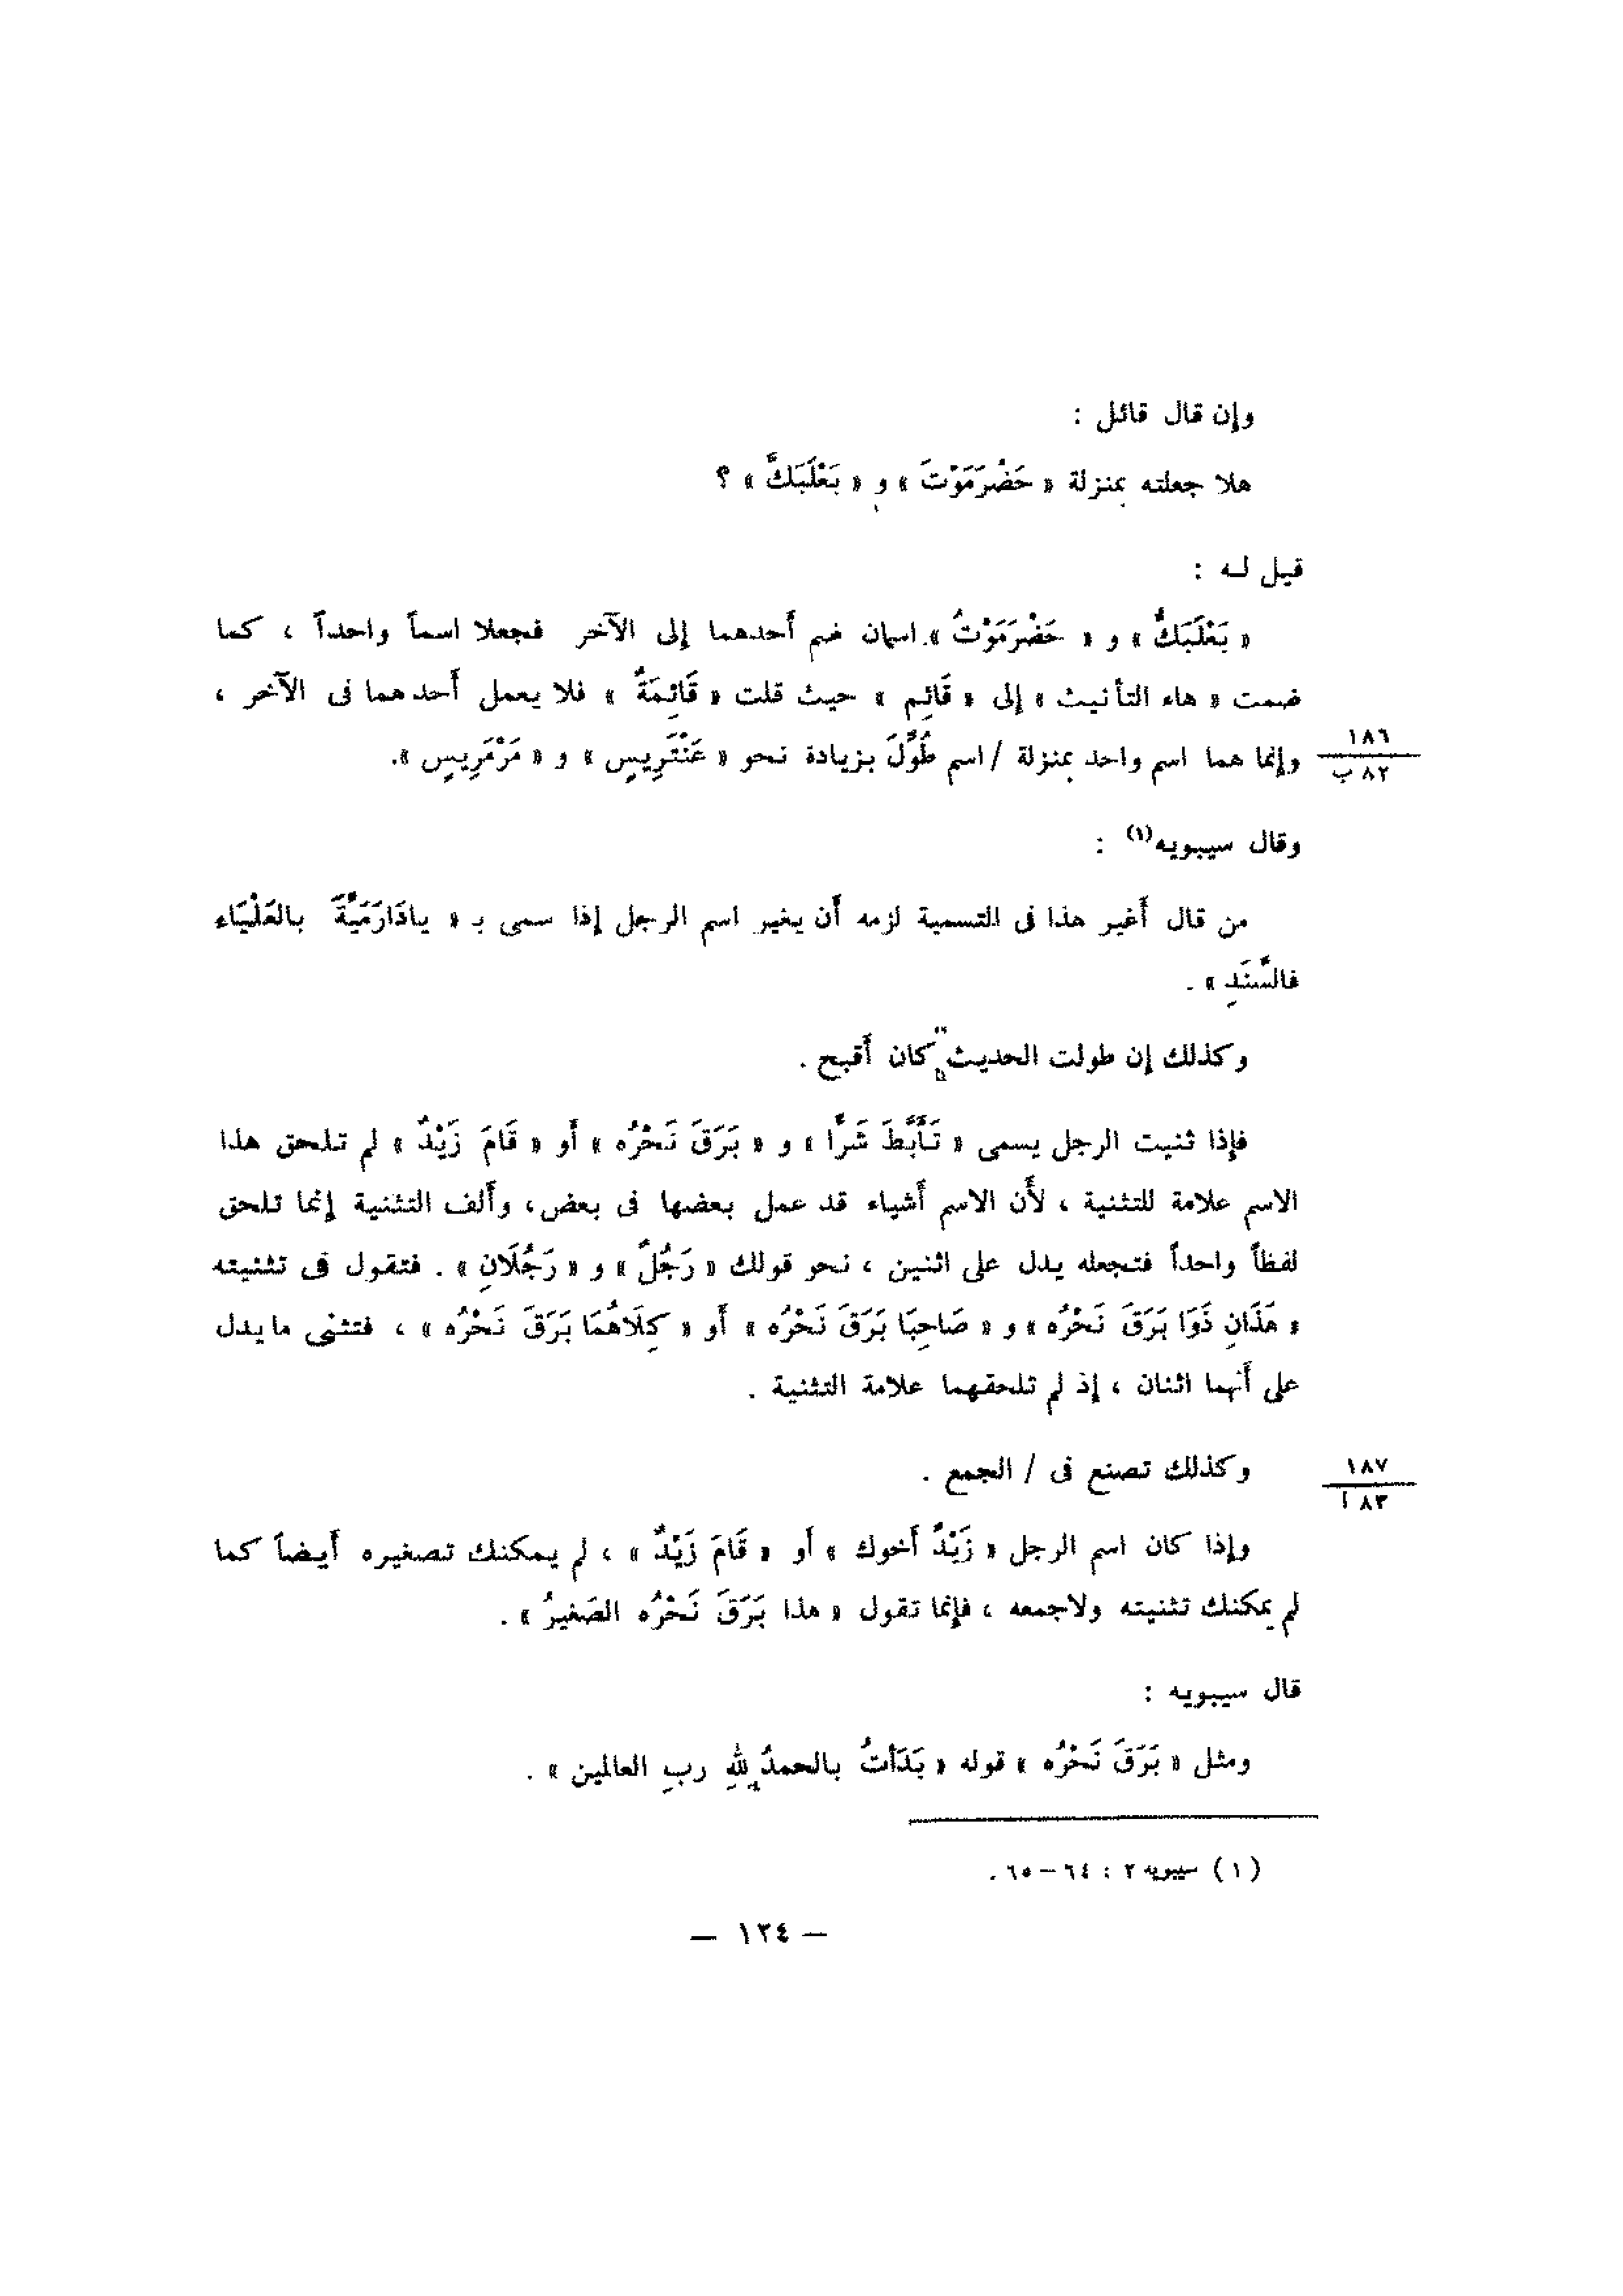 وإن قال قائل :
هلا جعلته بمنزلة « حَضْرَمَوْتَ » و « بَعْلَبَكَّ » ؟
قيل لـه :
« بَعْلَبَكُّ » و « حَضْرَمَوْتُ » اسمان ضم أَحدهما إلى الآخر فجعلا اسماً واحداً ، كما
ضمت « هاء التأنيث » إلى « قَائِم » حيث قلت « قَائِمَةٌ » فلا يعمل أَحدهما فى الآخر ،
وإنما هما اسم واحد بمنزلة / اسم طُوِّلَ بزيادة نحو « عَنْتَرِيسٍ » و « مَرْمَرِيسٍ ».
١٨٦
٨٢ ب
وقال سيبويه(١) :
من قال أَغير هذا فى التسمية لزمه أَن يغير اسم الرجل إذا سمى بـ « يادَارَمَيَّةَ بالعَلْيَاء
فالسَّنَدِ » .
وكذلك إن طولت الحديث كان أَقبح .
فإذا ثنيت الرجل يسمى « تَأَبَّطَ شَرًّا » و « بَرَقَ نَحْرُه » أَو « قَامَ زَيْدٌ » لم تلحق هذا
الاسم علامة للتثنية ، لأَن الاسم أَشياء قد عمل بعضها فى بعض ، وأَلف التثنية إنما تلحق
لفظاً واحداً فتجعله يدل على اثنين ، نحو قولك « رَجُلٌ » و « رَجُلَانِ » . فتقول فى تثنيته
« هَذَانِ ذَوَا بَرَقَ نَحْرُه » و « صَاحِبَا بَرَقَ نَحْرُه » أَو « كِلَاهُمَا بَرَقَ نَحْرُه » ، فتثنى مايدل
على أَنهما اثنان ، إذ لم تلحقهما علامة التثنية .
وكذلك تصنع فى / الجمع .
١٨٧
٨٣ أ
وإذا كان اسم الرجل « زَيْدٌ أَخوك » أَو « قَامَ زَيْدٌ » ، لم يمكنك تصغيره أَيضاً كما
لم يمكنك تثنيته ولاجمعه ، فإنما تقول « هذا بَرَقَ نَحْرُه الصَغيرُ » .
قال سيبويه :
ومثل « بَرَقَ نَحْرُه » قوله « بَدَأتُ بالحمدُ للهِ ربِ العالمين » .
(١) سيبويه ٢ : ٦٤ – ٦٥ .
— ١٣٤ —